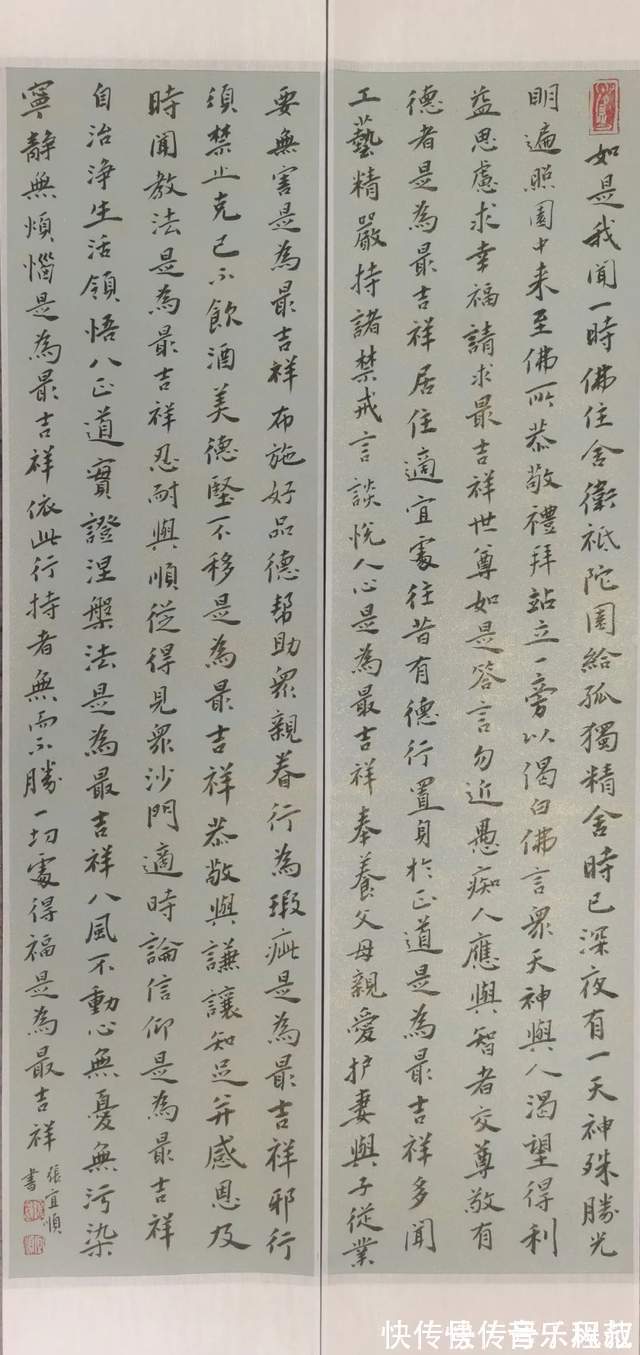 如是我闻一時佛住舍衛祗陀園給孤獨精舍時已深夜有一天神殊勝光
明遍照園中来至佛所恭敬禮拜站立一旁以偈白佛言眾天神與人渴望得利
益思慮求幸福請求最吉祥世尊如是答言勿近愚痴人應與智者交尊敬有
德者是為最吉祥居住適宜處往昔有德行置身於正道是為最吉祥多聞
工藝精嚴持諸禁戒言談悅人心是為最吉祥奉養父母親愛护妻與子從業
要無害是為最吉祥布施好品德幫助眾親眷行為瑕疵是為最吉祥邪行
須禁止克己不飲酒美德堅不移是為最吉祥恭敬與謙讓知足并感恩及
時聞教法是為最吉祥忍耐與順從得見眾沙門適時論信仰是為最吉祥
自治淨生活領悟八正道實證涅槃法是為最吉祥八風不動心無憂無污染
寧靜無煩惱是為最吉祥依此行持者無而不勝一切處得福是為最吉祥
張宜順
書
快传號